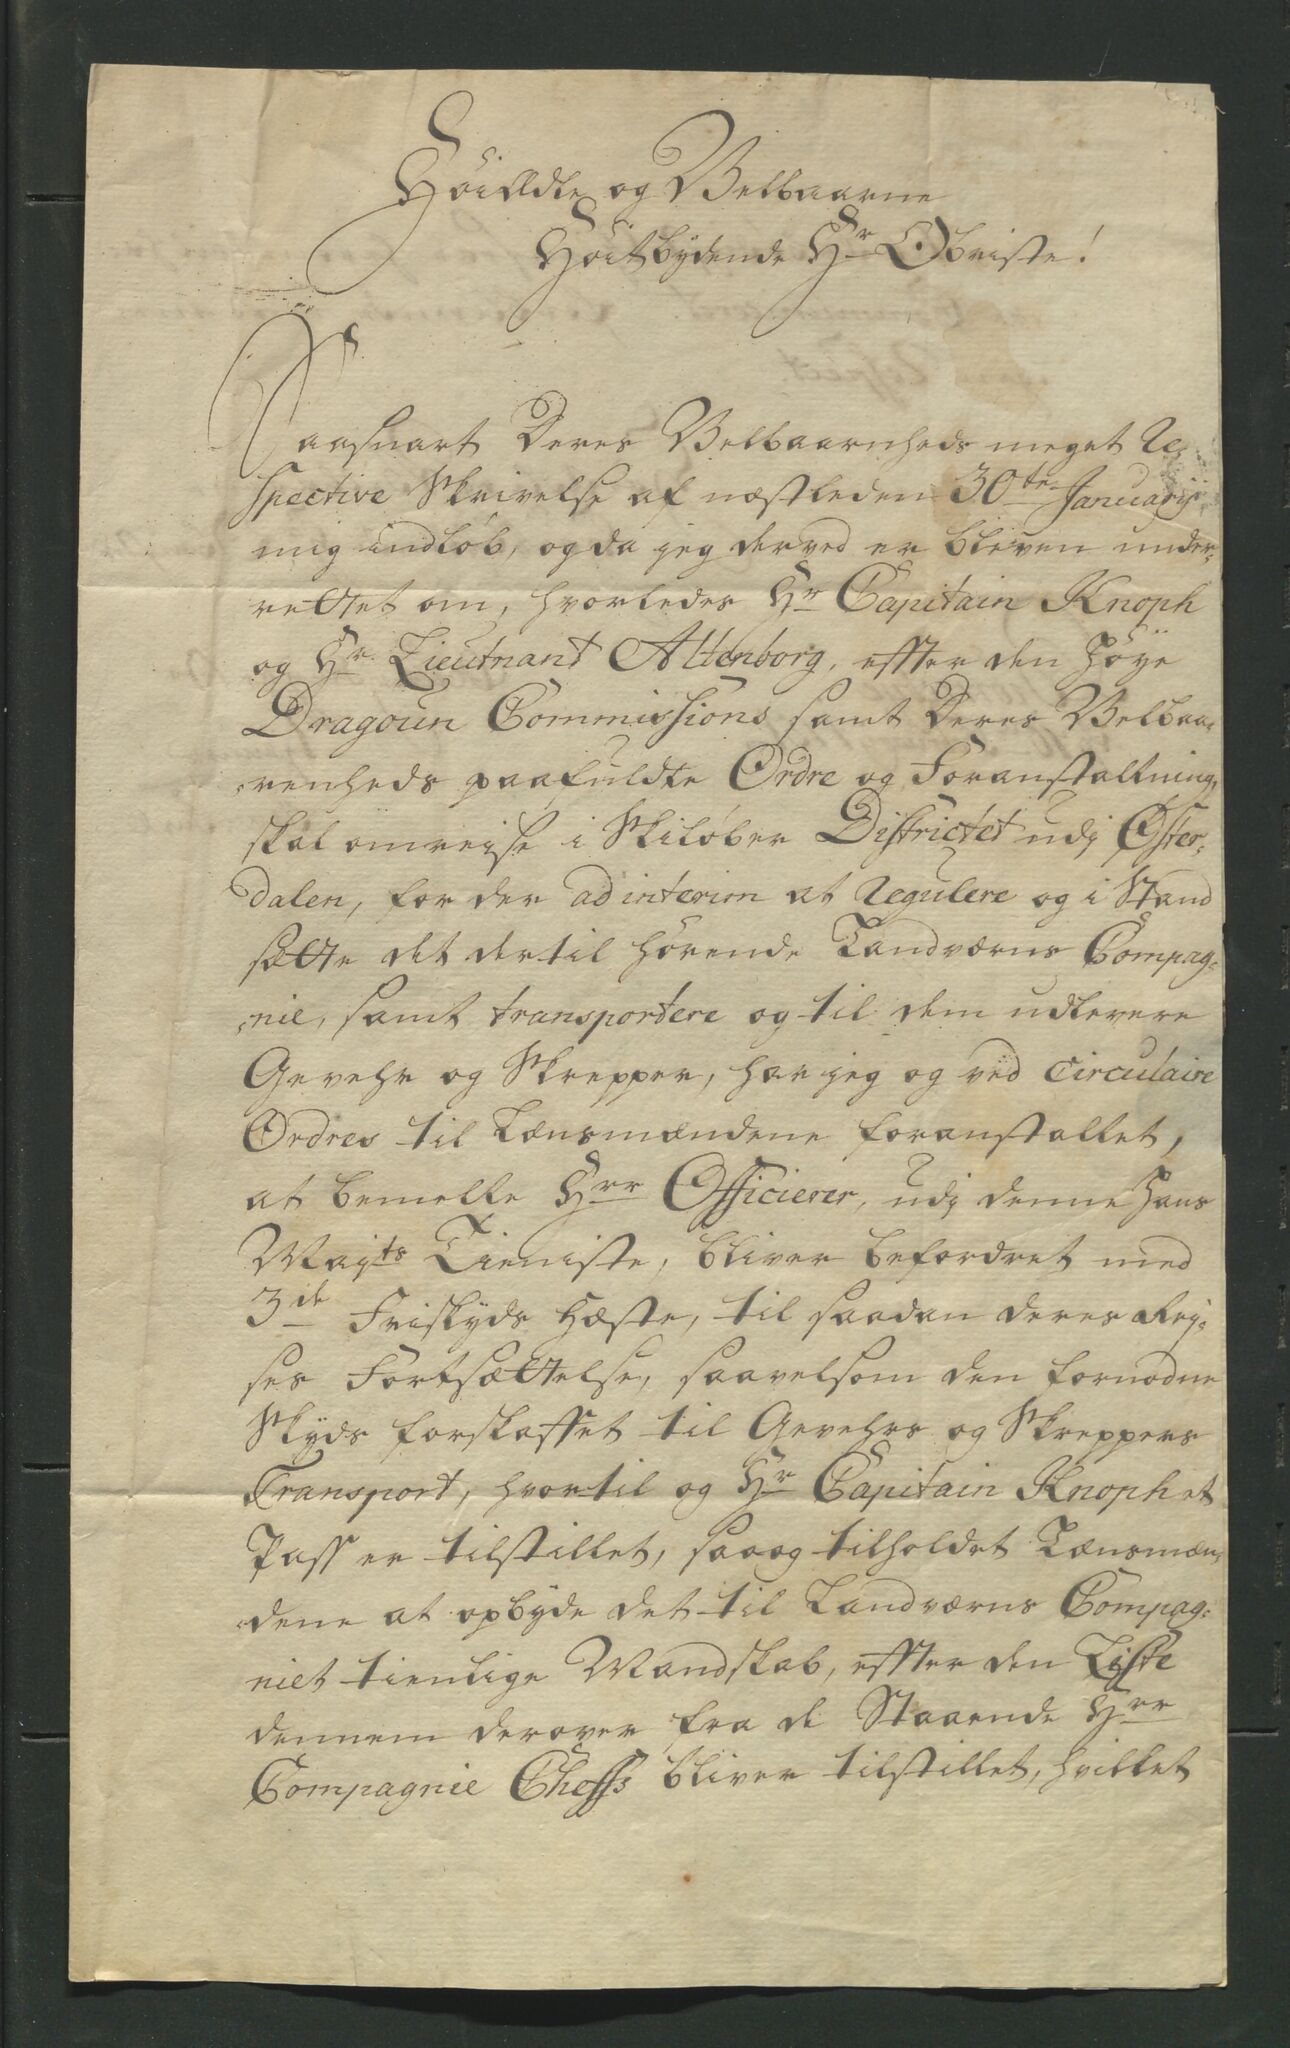 Höiædle og Velbaarne
Höitbydende Hr Obriste!
Saasnart Deres Velbaarnheds meget Re-
spective Skrivelse af næstleden 30te Januarij
mig indlöb, og da jeg derved er bleven under-
rettet om, hvorledes Hr Capitain Knoph
og Hr Lieutnant Altenborg, effter den Höÿe
Dragoun Commissions samt Deres Velbaa-
renheds paafuldte Ordre og Foranstaltning,
skal omreise i Skilöber Districtet udj Öster-
dalen, for der ad interim at Regulere og i Stand
sætte det dertil hörende Landværns Compag-
nie, samt transportere og til dem udlevere
Gevehr og Skrepper, har jeg og ved Circulaire
Ordres til Lænsmændene foranstaltet,
at bemelte Hrr Officierer, udj denne Hans
Majts Tieniste, bliver befordret med
3de Friskyds Hæste, til saadan deres Rej-
ses Fortsættelse, saavelsom den fornödne
Skyds forskaffet til Gevehrs og Skreppers
Transport, hvortil og Hr Capitain Knoph et
Pass er tilstillet, saa og tilholdet Lænsmæn-
dene at opbyde det til Landværns Compag-
niet tienlige Mandskab, effter den Liste
dennem derover fra de Staaende Hrr
Compagnie Cheffs bliver tilstillet, hvilket